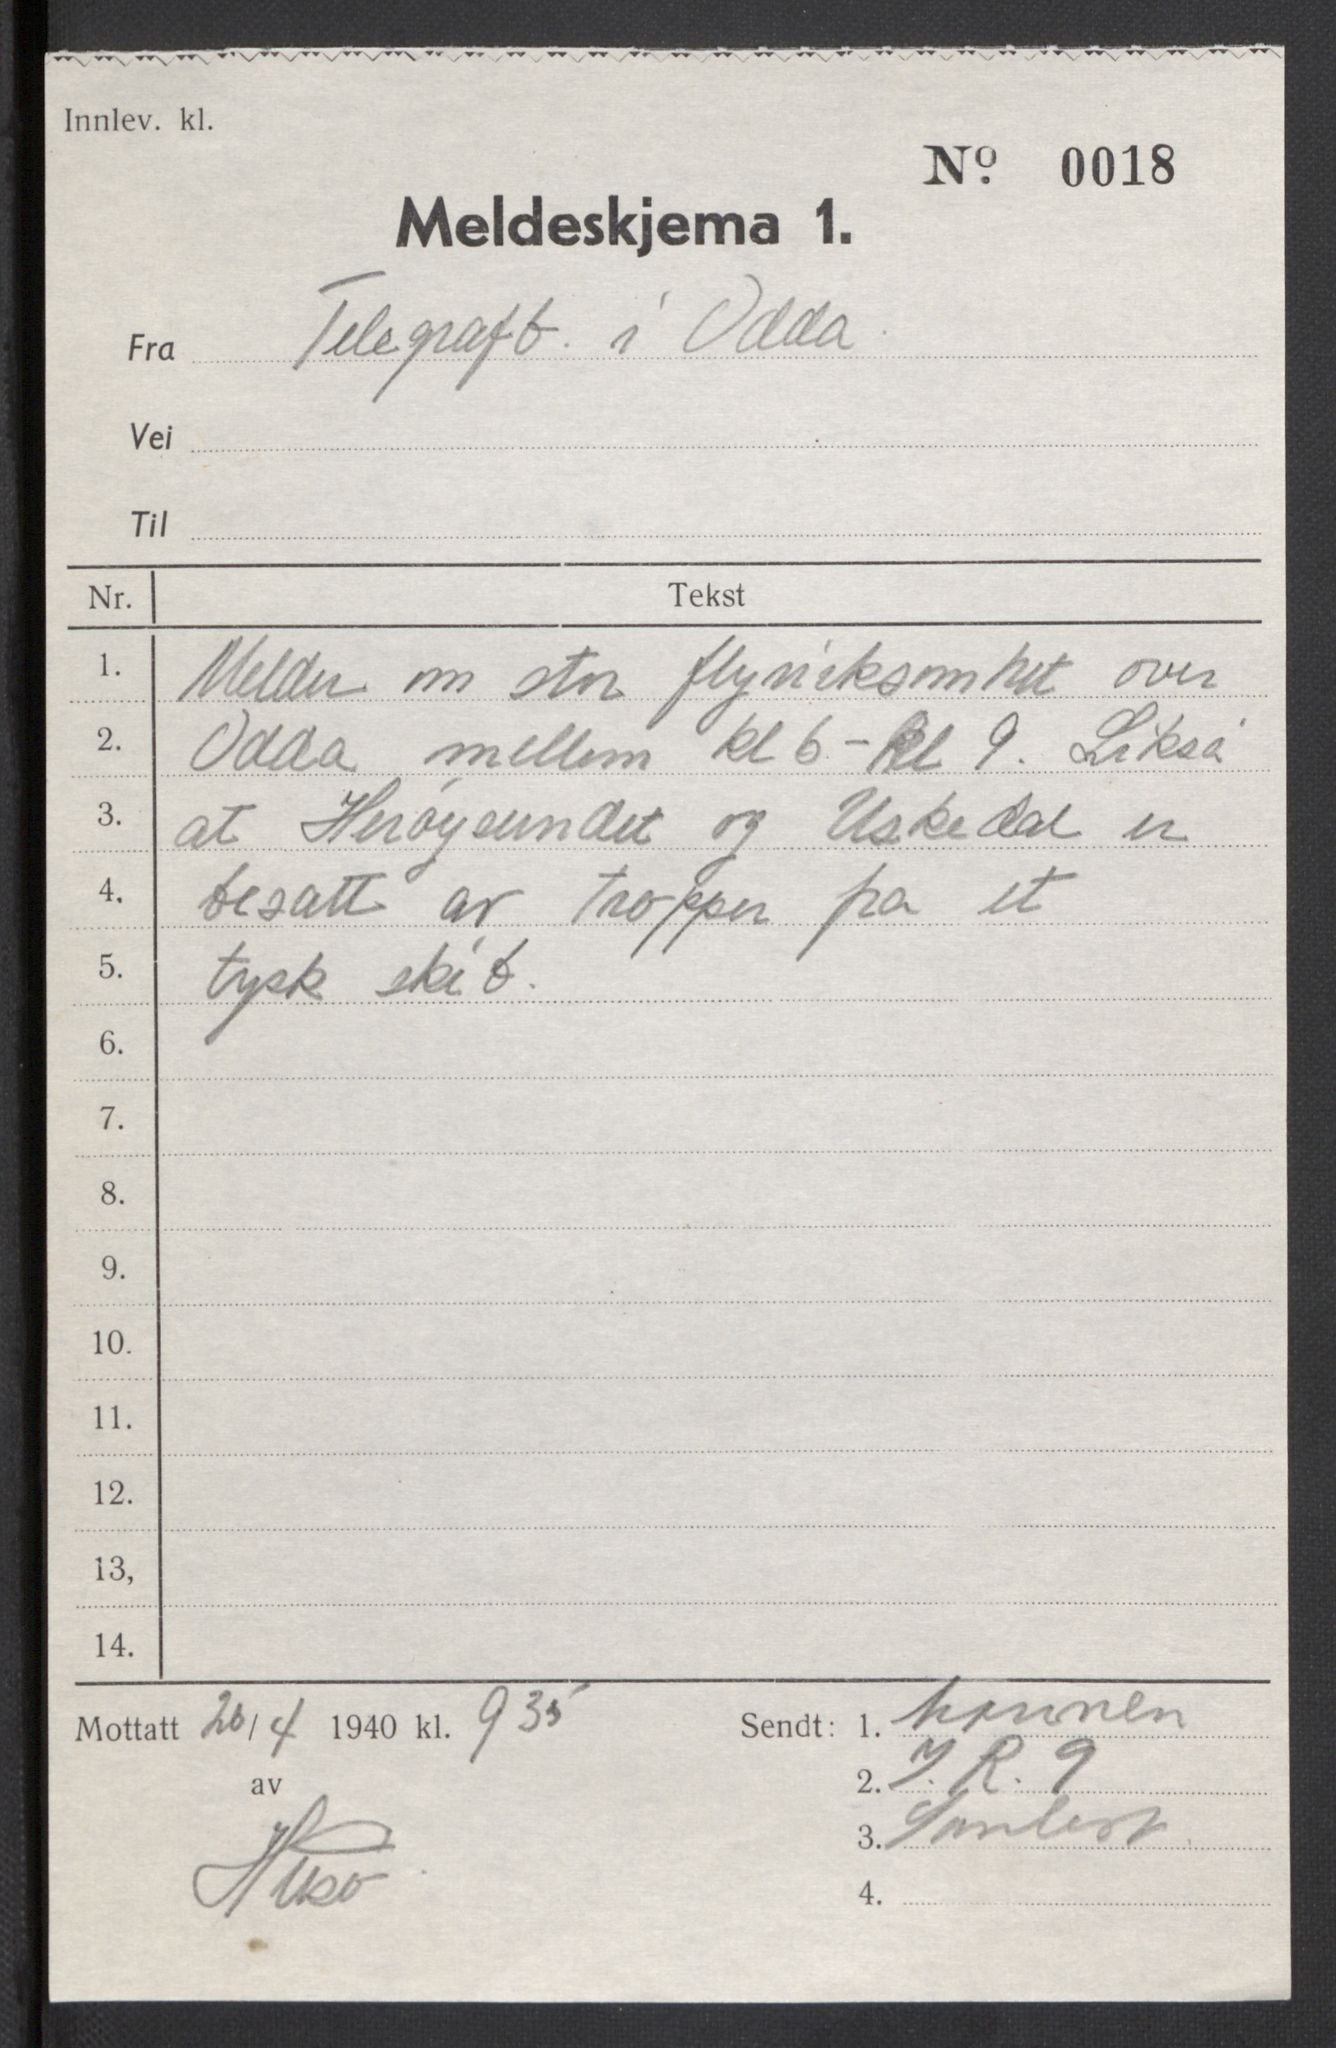 Innlev. kl.
Nº. 0018
Meldeskjema 1.
Fra Telegrafb. i Odda.
Vei
Til
Nr. Tekst
1. Melder om stor flyvirksomhet over
2. Odda mellem kl 6 - kl 9. Likså
3. at Herøysundet og Uskedal er
4. besatt av tropper fra et
5. tysk skib.
6.
7.
8.
9.
10.
11.
12.
13,
14.
Mottatt 20/4 1940 kl. 9 35 Sendt: 1.
av 2. I. R. 9
3.
4.